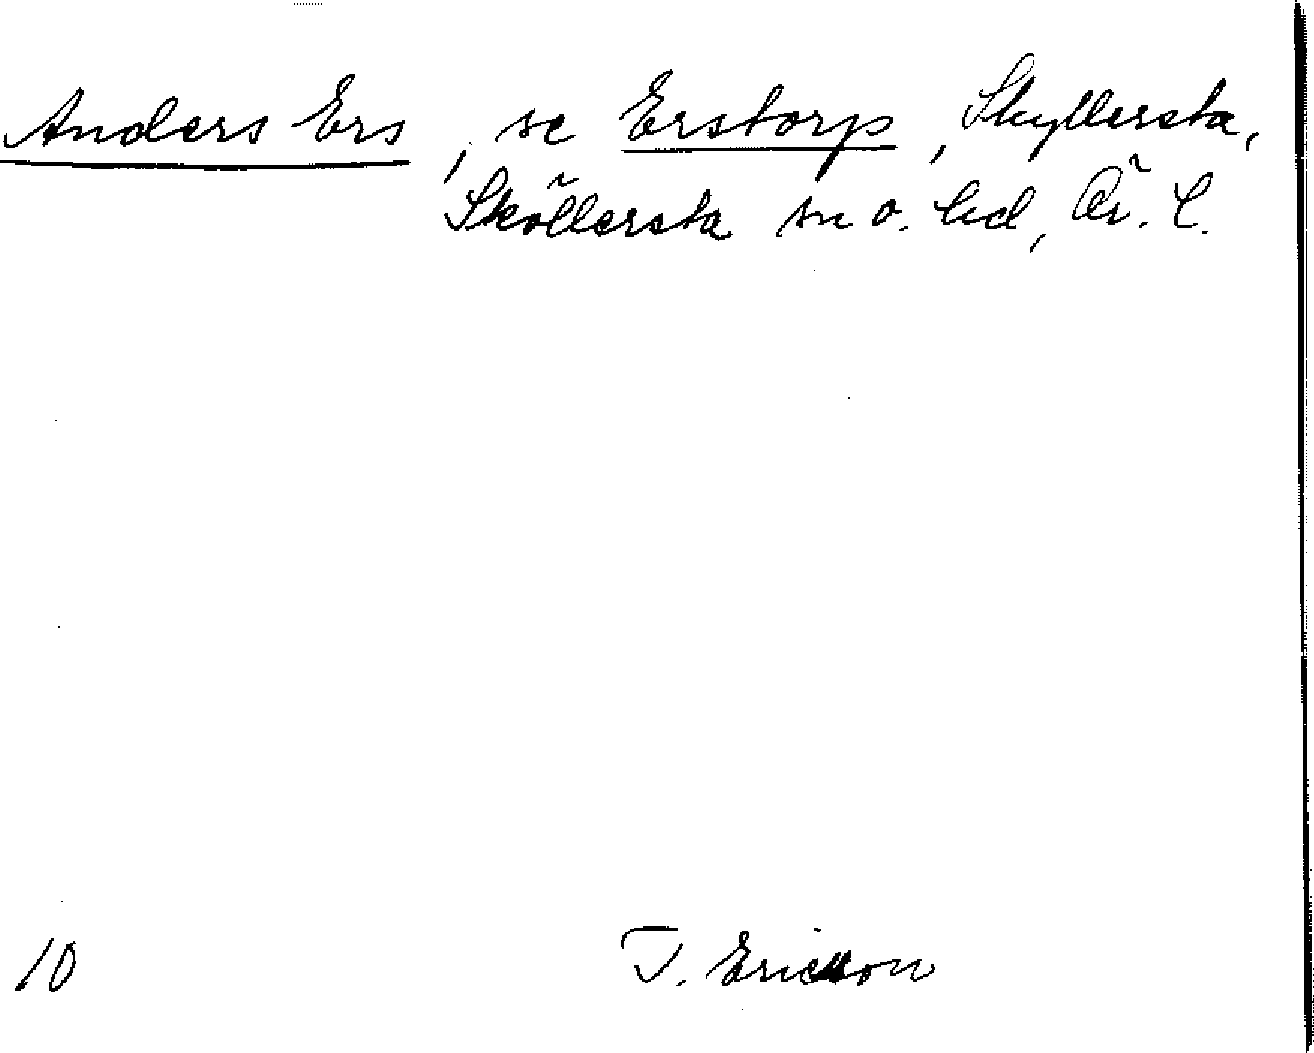 Anders Ers, se Erstorp, Skyllersta,
Sköllersta sn o. hd, Ör. l.
10 T. Ericsson